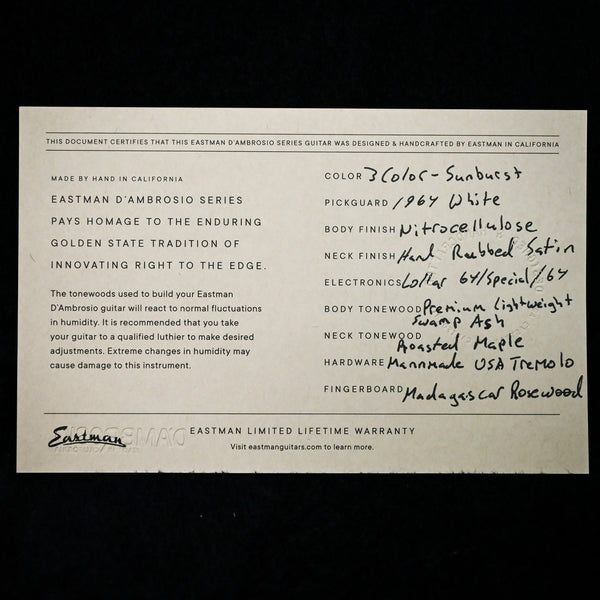 THIS DOCUMENT CERTIFIES THAT THIS EASTMAN D'AMBROSIO SERIES GUITAR WAS DESIGNED & HANDCRAFTED BY EASTMAN IN CALIFORNIA
MADE BY HAND IN CALIFORNIA
EASTMAN D'AMBROSIO SERIES
PAYS HOMAGE TO THE ENDURING
GOLDEN STATE TRADITION OF
INNOVATING RIGHT TO THE EDGE.
The tonewoods used to build your Eastman
D'Ambrosio guitar will react to normal fluctuations
in humidity. It is recommended that you take
your guitar to a qualified luthier to make desired
adjustments. Extreme changes in humidity may
cause damage to this instrument.
COLOR 3 Color - Sunburst
PICKGUARD 1964 White
BODY FINISH Nitrocellulose
NECK FINISH Hand Rubbed Satin
ELECTRONICS Lollar 64/Special/64
BODY TONEWOOD Premium Lightweight
Swamp Ash
NECK TONEWOOD
Roasted Maple
HARDWARE Mannmade USA Tremolo
FINGERBOARD Madagascar Rosewood
EASTMAN LIMITED LIFETIME WARRANTY
Eastman
Visit eastmanguitars.com to learn more.